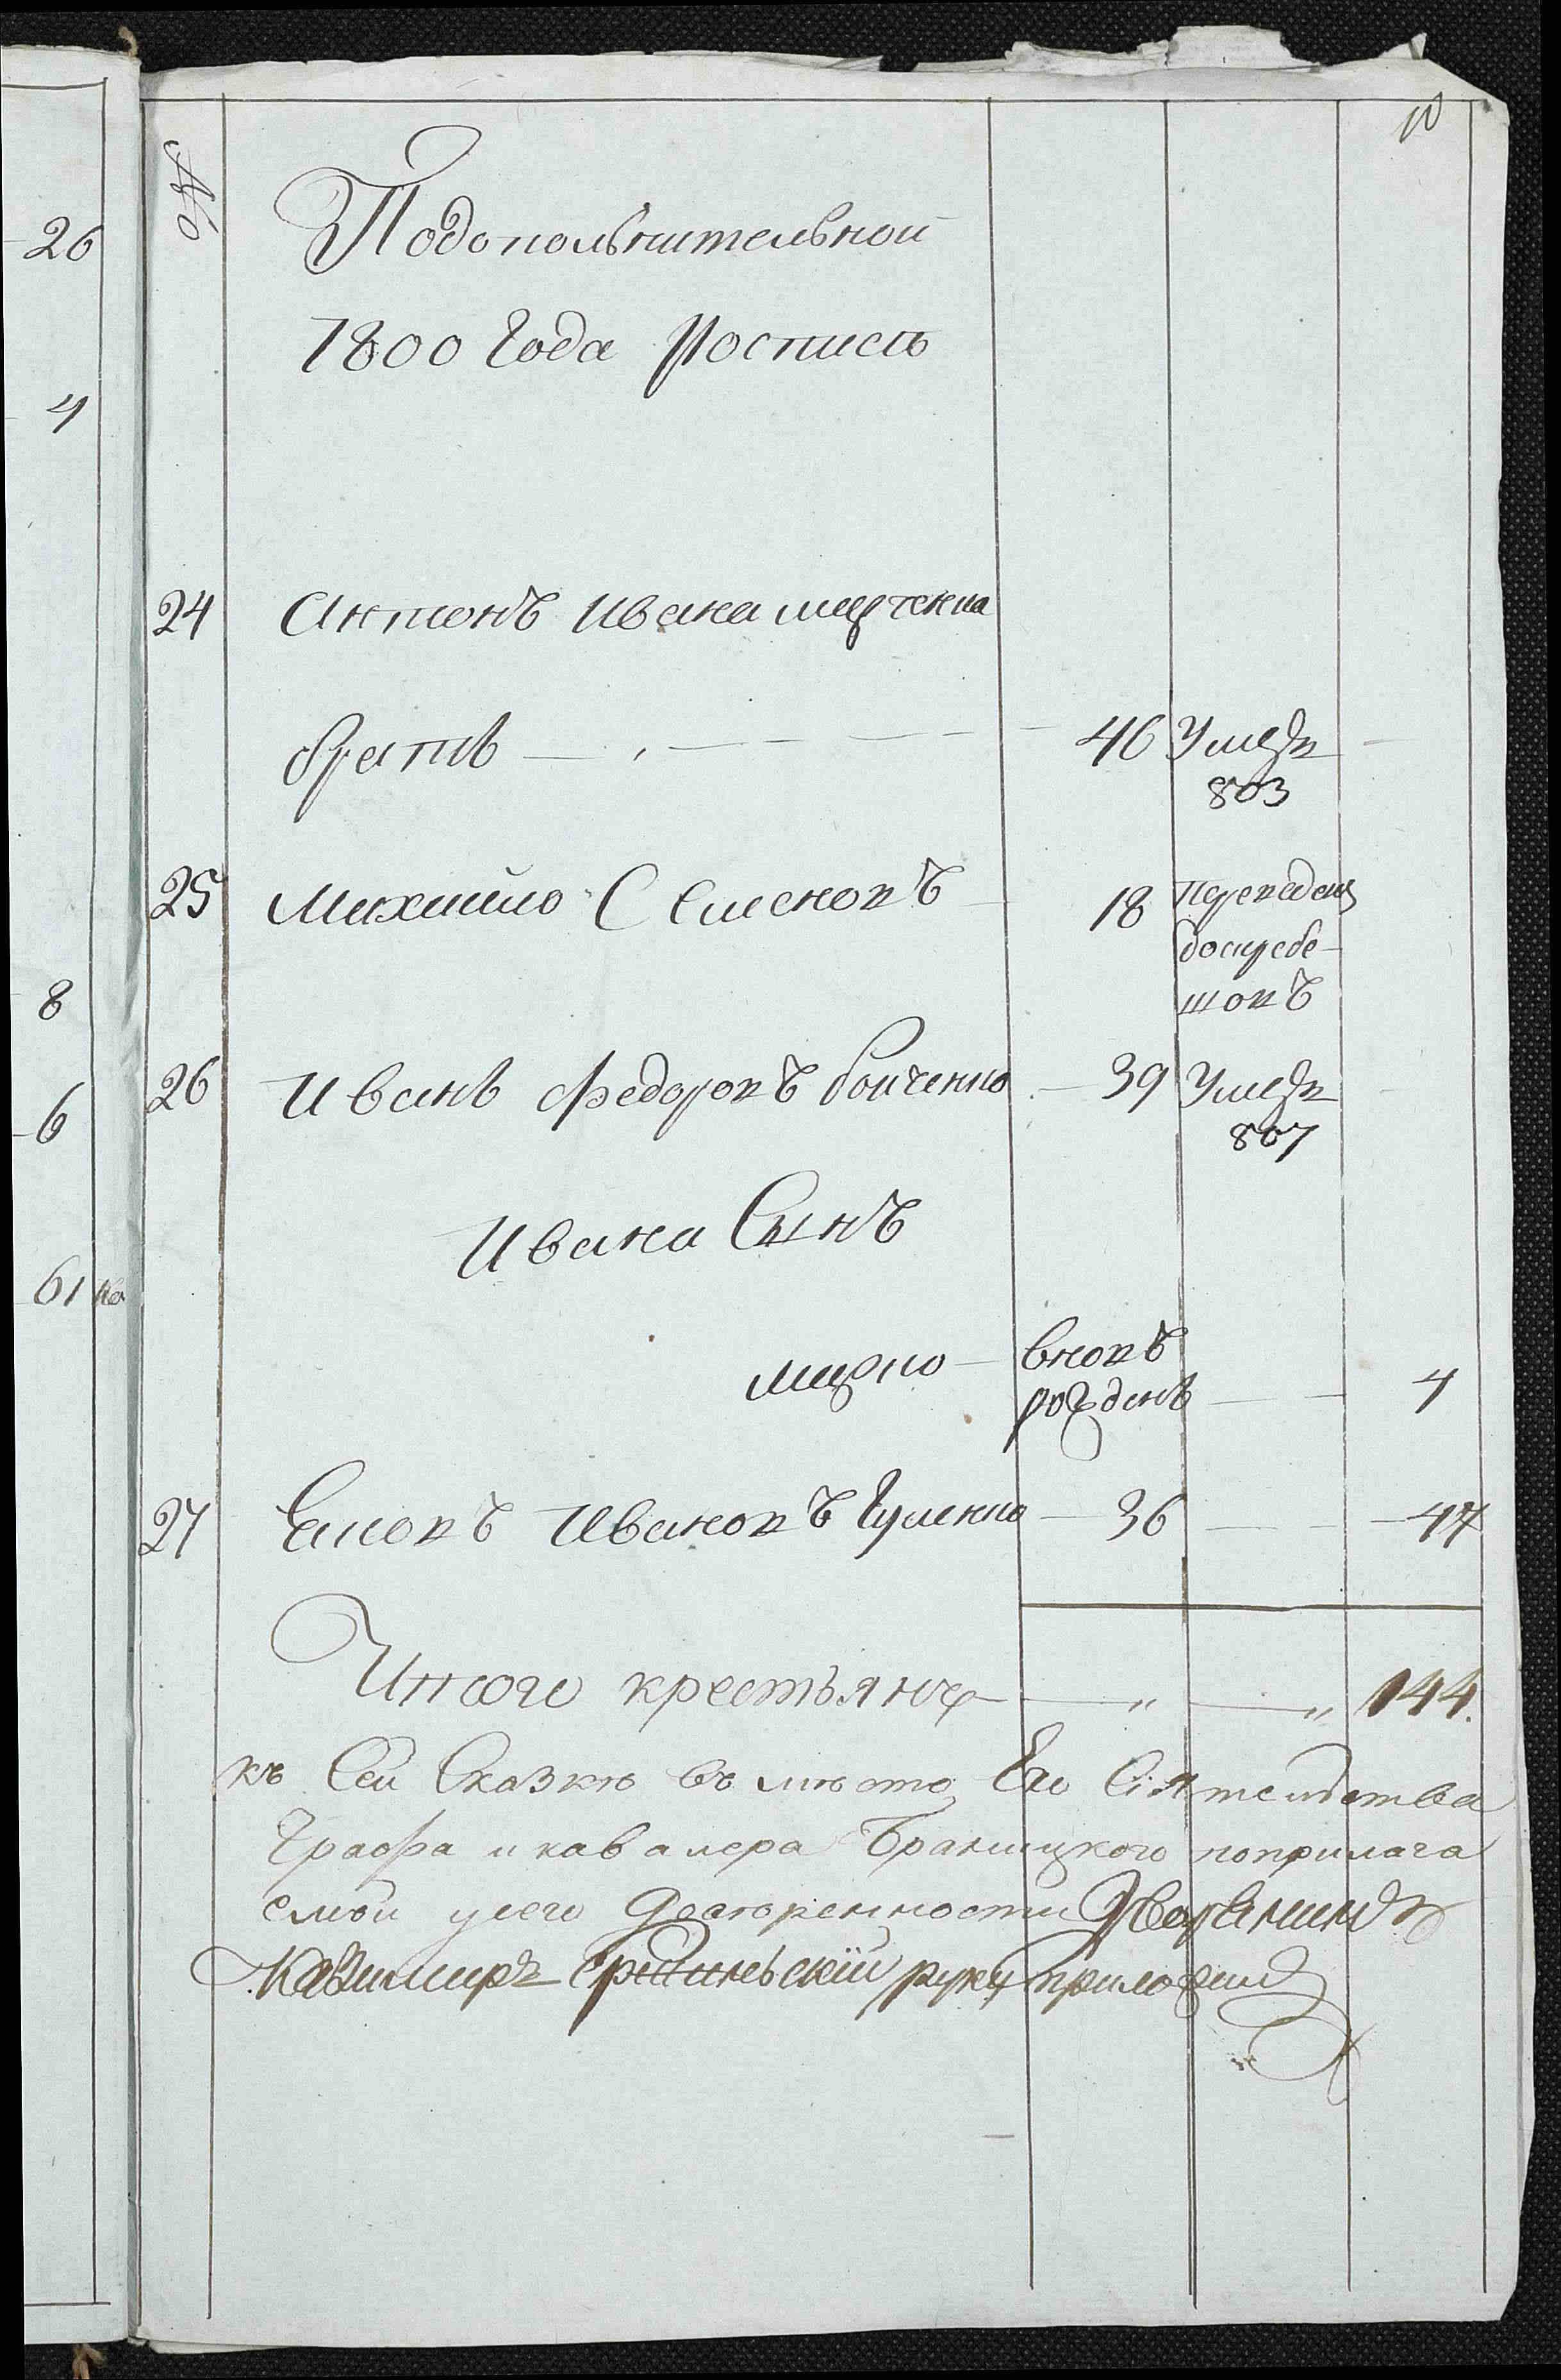 26
4
8
6
61
10
№
Подопольнительной
1800 Года Росписи
24 Антонъ Ивана марченка
братъ 46 Умеръ
803
25 Михайло Семеновъ 18 переведенъ
вослобо-
26 Иванъ Федоровъ бойченко 39 Умеръ
807
Ивана Сынъ
марко вновь
рожденъ 4
27 Ивановъ Гуленко 36 47
Итого крестьянъ 144.
къ Сей Сказке въ место Его Сіятельства
Графа и кавалера Браницкого поприлага
емой у сего доверенности Дворянинъ
Казимиръ руку приложилъ